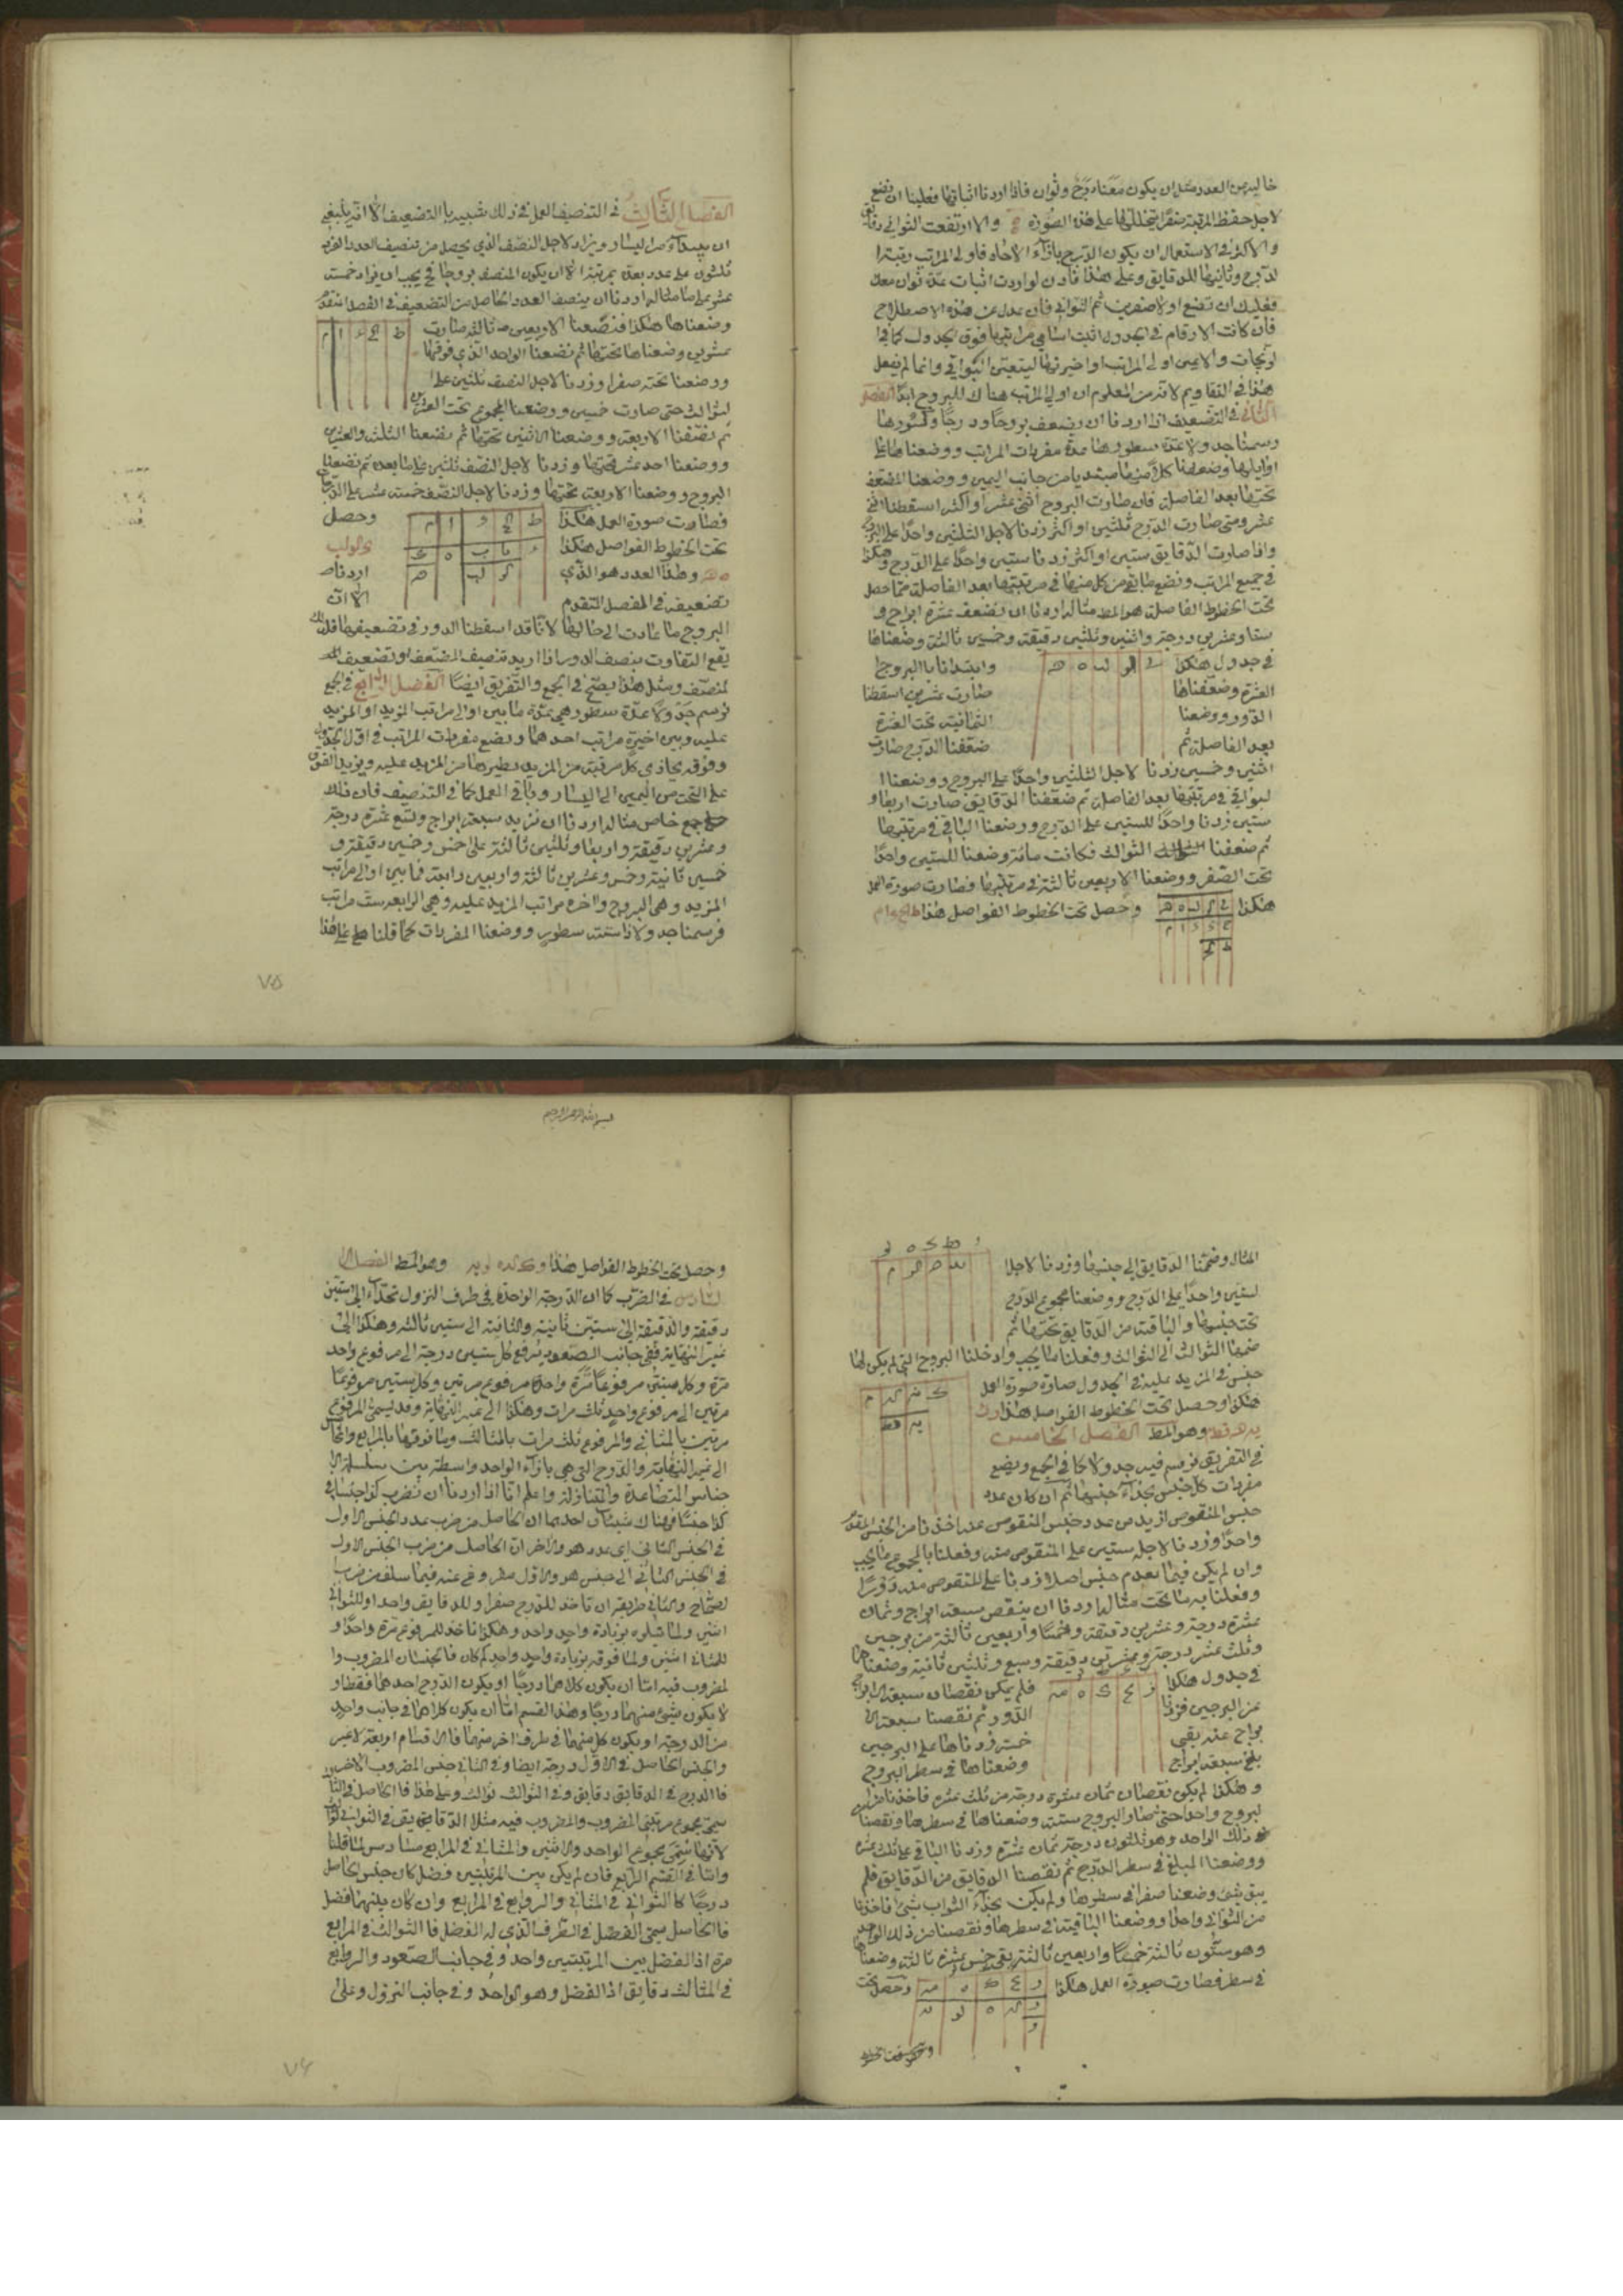 خالية من العدد مثل ان يكون معنا درج وثوان فاذا اردنا اثباتها فعلينا ان نضع
لاجل حفظ المرتبة صفرا يتخللها على هذه الصورة والا ارتفعت الثواني دقايق
والاكثر في الاستعمال ان يكون الدرج بازاء الآحاد فاولى المراتب رتبة
الدرج وثانيها للدقايق وعلى هذا فاذن لو اردت اثبات عدة ثوان معك
فعليك ان تضع اولا صفرين ثم الثواني فان عدل عن هذه الاصطلاح
فان كانت الارقام في الجدول اثبت اسامي مراتبها فوق الجدول كما في
الزيجات والا يعين اولى المراتب او اخيرتها ليتعين البواقي وانما لم يفعل
هذا في التقاويم لانه من المعلوم ان اولى المراتب هناك للبروج ابدا الفصل
الثاني في التضعيف اذا اردنا ان نضعف بروجا ودرجا وكسورها
رسمنا جدولا عدة سطورها عدة مفردات المراتب ووضعناها على
اوايلها وضعفنا كلا منها مبتديا من جانب اليمين ووضعنا المضعف
تحتها بعد الفاصلة فان صارت البروج اثنى عشر او اكثر اسقطنا اثنى
عشر ومتى صارت الدرج ثلثين او اكثر زدنا لاجل الثلثين واحدا على البروج
واذا صارت الدقايق ستين او اكثر زدنا ستين واحدا على الدرج وهكذا
في جميع المراتب ونضع ما بقى من كل منها في مرتبتها بعد الفاصلة فما حصل
تحت الخطوط الفاصلة هو المط مثاله اردنا ان نضعف عشرة ابراج و
ستا وعشرين درجة واثنين وثلثين دقيقة وخمسين ثالثة وضعناها
في جدول هكذا ى كو لب ه ن وابتدانا بالبروج
العشرة وضعفناها صارت عشرين اسقطنا
الدور ووضعنا الثمانية تحت العشرة
بعد الفاصلة ثم ضعفنا الدرج صارت
اثنين وخمسين زدنا لاجل الثلثين واحدا على البروج ووضعنا ا
لبواقي في مرتبتها بعد الفاصلة ثم ضعفنا الدقايق صارت اربعا و
ستين زدنا واحدا للستين على الدرج ووضعنا الباقي في مرتبتها
ثم ضعفنا الثوالث فكانت مائة وضعنا للستين واحدا
تحت الصفر ووضعنا الاربعين ثالثة في مرتبتها فصارت صورة العمل
هكذا وحصل تحت الخطوط الفواصل هذا
الفصل الثالث في التنصيف العمل في ذلك شبيه بالتضعيف الا انه ينبغي
ان يبدأ من اليسار ويزاد لاجل النصف الذي يحصل من تنصيف العدد الفرد
ثلثون على عدد بعده بمرتبة الا ان يكون المنصف بروجا فح يجب ان يزاد خمسة
عشر على ما مثاله اردنا ان ينصف العدد الحاصل من التضعيف في الفصل المتقدم
وضعناها هكذا فنصفنا الاربعين ثالثة صارت
عشرين وضعناها تحتها ثم نصفنا الواحد الذي فوقها
ووضعنا تحته صفرا وزدنا لاجل النصف ثلثين على
الثوالث حتى صارت خمسين ووضعنا المجموع تحت العشرين
ثم نصفنا الاربعة ووضعنا الاثنين تحتها ثم نصفنا الثلث والعشرين
ووضعنا احد عشر تحتها وزدنا لاجل النصف ثلثين على ما بعده ثم نصفنا
البروج ووضعنا الاربعة تحتها وزدنا لاجل النصف خمسة عشر على الدرجات
فصارت صورة العمل هكذا وحصل
تحت الخطوط الفواصل هكذا
وهذا العدد هو الذي اردنا
تضعيفه في الفصل المتقدم الا ان
البروج ما عادت الى حالها لانا قد اسقطنا الدور في تضعيفها فلذلك
يقع التفاوت بنصف الدور اذا اريد تنصيف المضعف او تضعيف ا
لمنصف ومثل هذا يصح في الجمع والتفريق ايضا الفصل الرابع في الجمع
نرسم جدولا عدة سطوره هي عدة ما بين اولى مراتب المزيد او المزيد
عليه وبين اخيرة مراتب احدهما ونضع مفردات المراتب في اول الجدول
وفوقه يحاذي كل مرتبة من المزيد نظيرها من المزيد عليه ونزيد الفوق
على التحت من اليمين الى اليسار وباقي العمل كما في التنصيف فان ذلك
جمع خاص مثاله اردنا ان نزيد سبعة ابراج وتسع عشرة درجة
وعشرين دقيقة واربعا وثلثين ثالثة على خمس وخمسين دقيقة و
خمسين ثانية وخمس وعشرين ثالثة واربعين رابعة فما بين اولى مراتب
المزيد وهي البروج واخرة مراتب المزيد عليه وهي الرابعة ست مراتب
فرسمنا جدولا ذا ستة سطور ووضعنا المفردات كما قلنا على هذا
٧٥
المثال وضممنا الدقايق الى جنسها وزدنا لاجل ا
لستين واحدا على الدرج ووضعنا مجموع الدرج
تحت جنسها والباقية من الدقايق تحتها ثم
ضممنا الثوالث الى الثوالث وفعلنا ما يجب وادخلنا البروج التي لم يكن لها
جنس في المزيد عليه في الجدول صارة صورة العمل
هكذا وحصل تحت الخطوط الفواصل هذا
وهو المط الفصل الخامس
في التفريق نرسم فيه جدولا كما في الجمع ونضع
مفردات كل جنس بحذاء جنسها ثم ان كان عدد
جنس المنقوص ازيد من عدد جنس المنقوص عنه اخذنا من الجنس المقدم
واحدا وزدنا لاجله ستين على المنقوص منه وفعلنا بالمجموع ما يجب
وان لم يكن فيما تقدم جنس اصلا زدنا على المنقوص منه دورا
وفعلنا به ما يجب مثاله اردنا ان ينقص سبعة ابراج وثمان
عشرة درجة وعشرين دقيقة وخمسا واربعين ثالثة من برجين
وثلث عشر درجة وعشرين دقيقة وسبع وثلثين ثانية وضعناها
في جدول هكذا فلم يمكن نقصان سبعة ابراج
عن البرجين فزدنا الدور ثم نقصنا سبعة ا
براج عنه بقى خمسة زدناها على البرجين
بلغ سبعة ابراج وضعناها في سطر البروج
وهكذا لم يمكن نقصان ثمان عشرة درجة من ثلث عشرة فاخذنا من ا
لبروج واحدا حتى صار البروج ستة وضعناها في سطرها ونقصنا
ذلك الواحد وهو ثلثون درجة ثمان عشرة وزدنا الباقي على ثلث عشرة
ووضعنا المبلغ في سطر الدرج ثم نقصنا الدقايق من الدقايق فلم
يبق شئ وضعنا صفرا في سطرها ولم يكن بحذاء الثوالث شئ فاخذنا
من الثواني واحدا ووضعنا الباقية في سطرها ونقصنا من ذلك الواحد
وهو ستون ثالثة خمسا واربعين ثالثة بقى خمس عشرة ثالثة وضعناها
في سطر فصارت صورة العمل هكذا وحصل تحت
بسم الله الرحمن الرحيم
وحصل تحت الخطوط الفواصل هذا وهو المط الفصل ا
لسادس في الضرب كما ان الدرجة الواحدة في طرف النزول تجزأ الى ستين
دقيقة والدقيقة الى ستين ثانية والثانية الى ستين ثالثة وهكذا الى
غير النهاية ففي جانب الصعود يرفع كل ستين درجة الى مرفوع واحد
مرة وكل ستين مرفوعا مرة واحدة مرفوع مرتين وكل ستين مرفوعا
مرتين الى مرفوع واحد ثلث مرات وهكذا الى غير النهاية وقد يسمى المرفوع
مرتين بالمثاني والمرفوع ثلث مرات بالمثالث وما فوقها بالمرابع والمخامس
الى غير النهاية والدرج التي هي بازاء الواحد واسطة بين سلسلة الا
جناس المتصاعدة والمتنازلة واعلم انا اذا اردنا ان نضرب كذا جنسا في
كذا جنسا فهناك شيئان احدهما ان الحاصل من ضرب عدد الجنس الاول
في الجنس الثاني اي عدد هو والاخر ان الحاصل من ضرب الجنس الاول
في الجنس الثاني اي جنس هو والاول مفروغ عنه فيما سلف من ضرب
الصحاح والثاني طريقه ان تاخذ للدرج صفرا وللدقايق واحدا وللثواني
اثنين ولما يتلوه بزيادة واحد واحد وهكذا تاخذ للمرفوع مرة واحدا و
للمثاني اثنين ولما فوقه بزيادة واحد واحد كم كان فالجنسان المضروب وا
لمضروب فيه اما ان يكون كلاهما درجا او يكون الدرج احدهما فقط او
لا يكون شئ منهما درجا وهذا القسم اما ان يكون كلاهما في جانب واحد
من الدرجة او يكون كل منهما في طرف اخر منهما فالاقسام اربعة لا غير
والجنس الحاصل في الاول درجة ايضا وفي الثاني جنس المضروب الاخر
فالدرج في الدقايق دقايق وفي الثوالث ثوالث وعلى هذا فالحاصل في الثالث
سمى مجموع مرتبتي المضروب والمضروب فيه مثلا الدقايق في الثواني ثوالث
لانها سمى مجموع الواحد والاثنين والمثاني في المرابع مسادس لما قلنا
واما في القسم الرابع فان لم يكن بين المرتبتين فضل كان جنس الحاصل
درجا كالثواني في المثاني والروابع في المرابع وان كان بينهما فضل
فالحاصل سمى الفضل في الطرف الذي له الفضل فالثوالث في المرابع
مرة اذ الفضل بين المرتبتين واحد وفي جانب الصعود والروابع
في المثالث دقايق اذ الفضل وهو الواحد وفي جانب النزول وعلى
٧٦